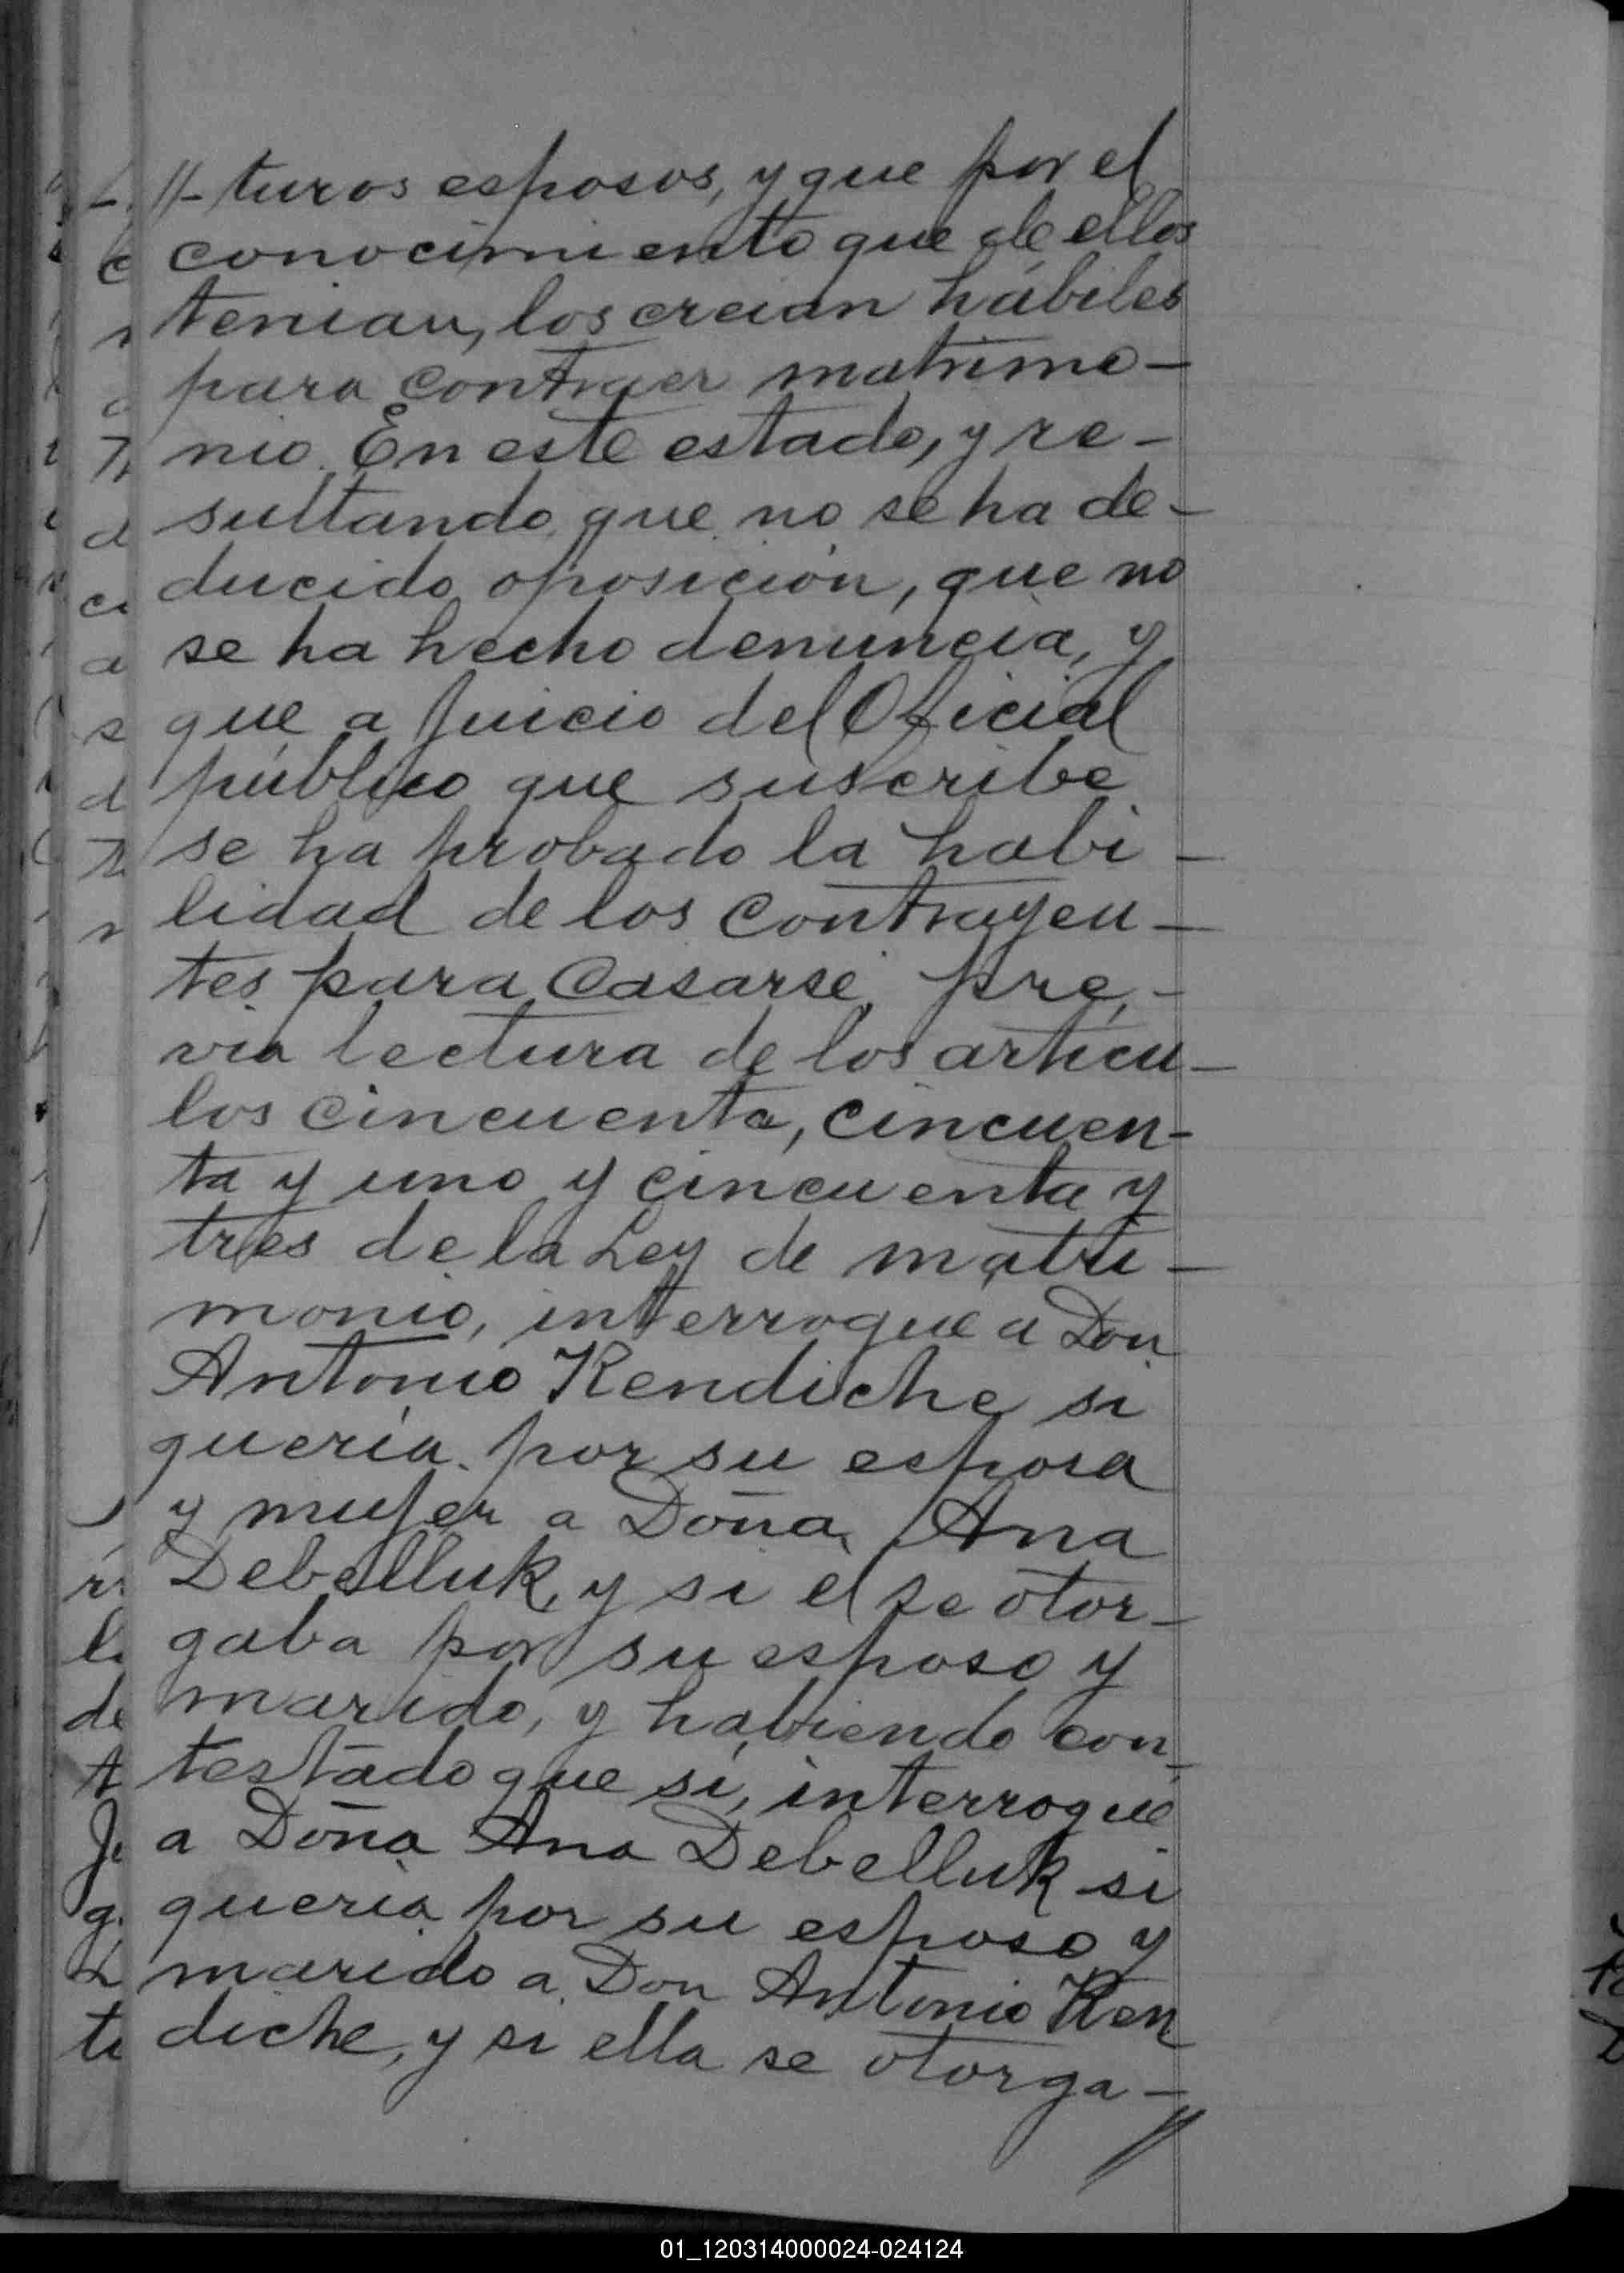 //-turos esposos, y que por el
conocimiento que de ellos
tenian, los creian hábiles
para contraer matrimo-
nio. En este estado, y re-
sultando que no se ha de-
ducido oposición, que no
se ha hecho denuncia, y
que a juicio del Oficial
público que suscribe
se ha probado la habi-
lidad de los contrayen-
tes para casarse, pre-
via lectura de los articu-
los cincuenta, cincuen-
ta y uno y cincuenta y
tres de la Ley de matri-
monio, interrogue a Don
Antonio Kendiche si
quería por su esposa
y mujer a Doña Ana
Debelluk, y si el se otor-
gaba por su esposo y
marido, y habiendo con-
testado que si, interrogué
a Doña Ana Debelluk si
queria por su esposo y
marido a Don Antonio Ken
diche, y si ella se otorga-
//
01_120314000024-024124